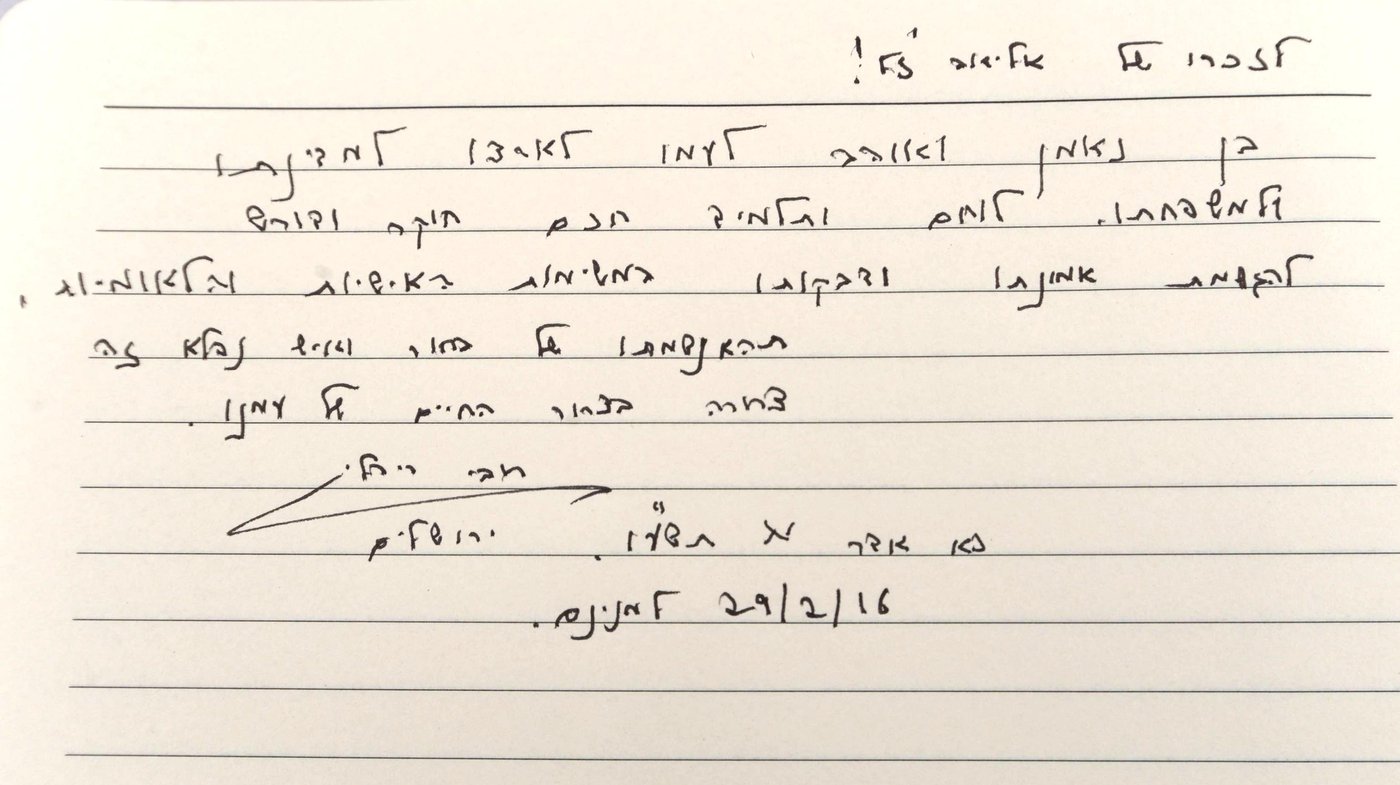 לזכרו של אליאב ז"ל!
בן נאמן ואוהב לעמו לארצו למדינתו
ולמשפחתו. לוחם ותלמיד חכם חוקר ודורש
להגשמת אמונתו ודבקותו במשימות האישיות והלאומיות.
תהא נשמתו של בחור ואיש נפלא זה
צרורה בצרור החיים של עמנו.
רובי ריבלי
כא אדר א תשע"ו. ירושלים
29/2/16 למנינם.